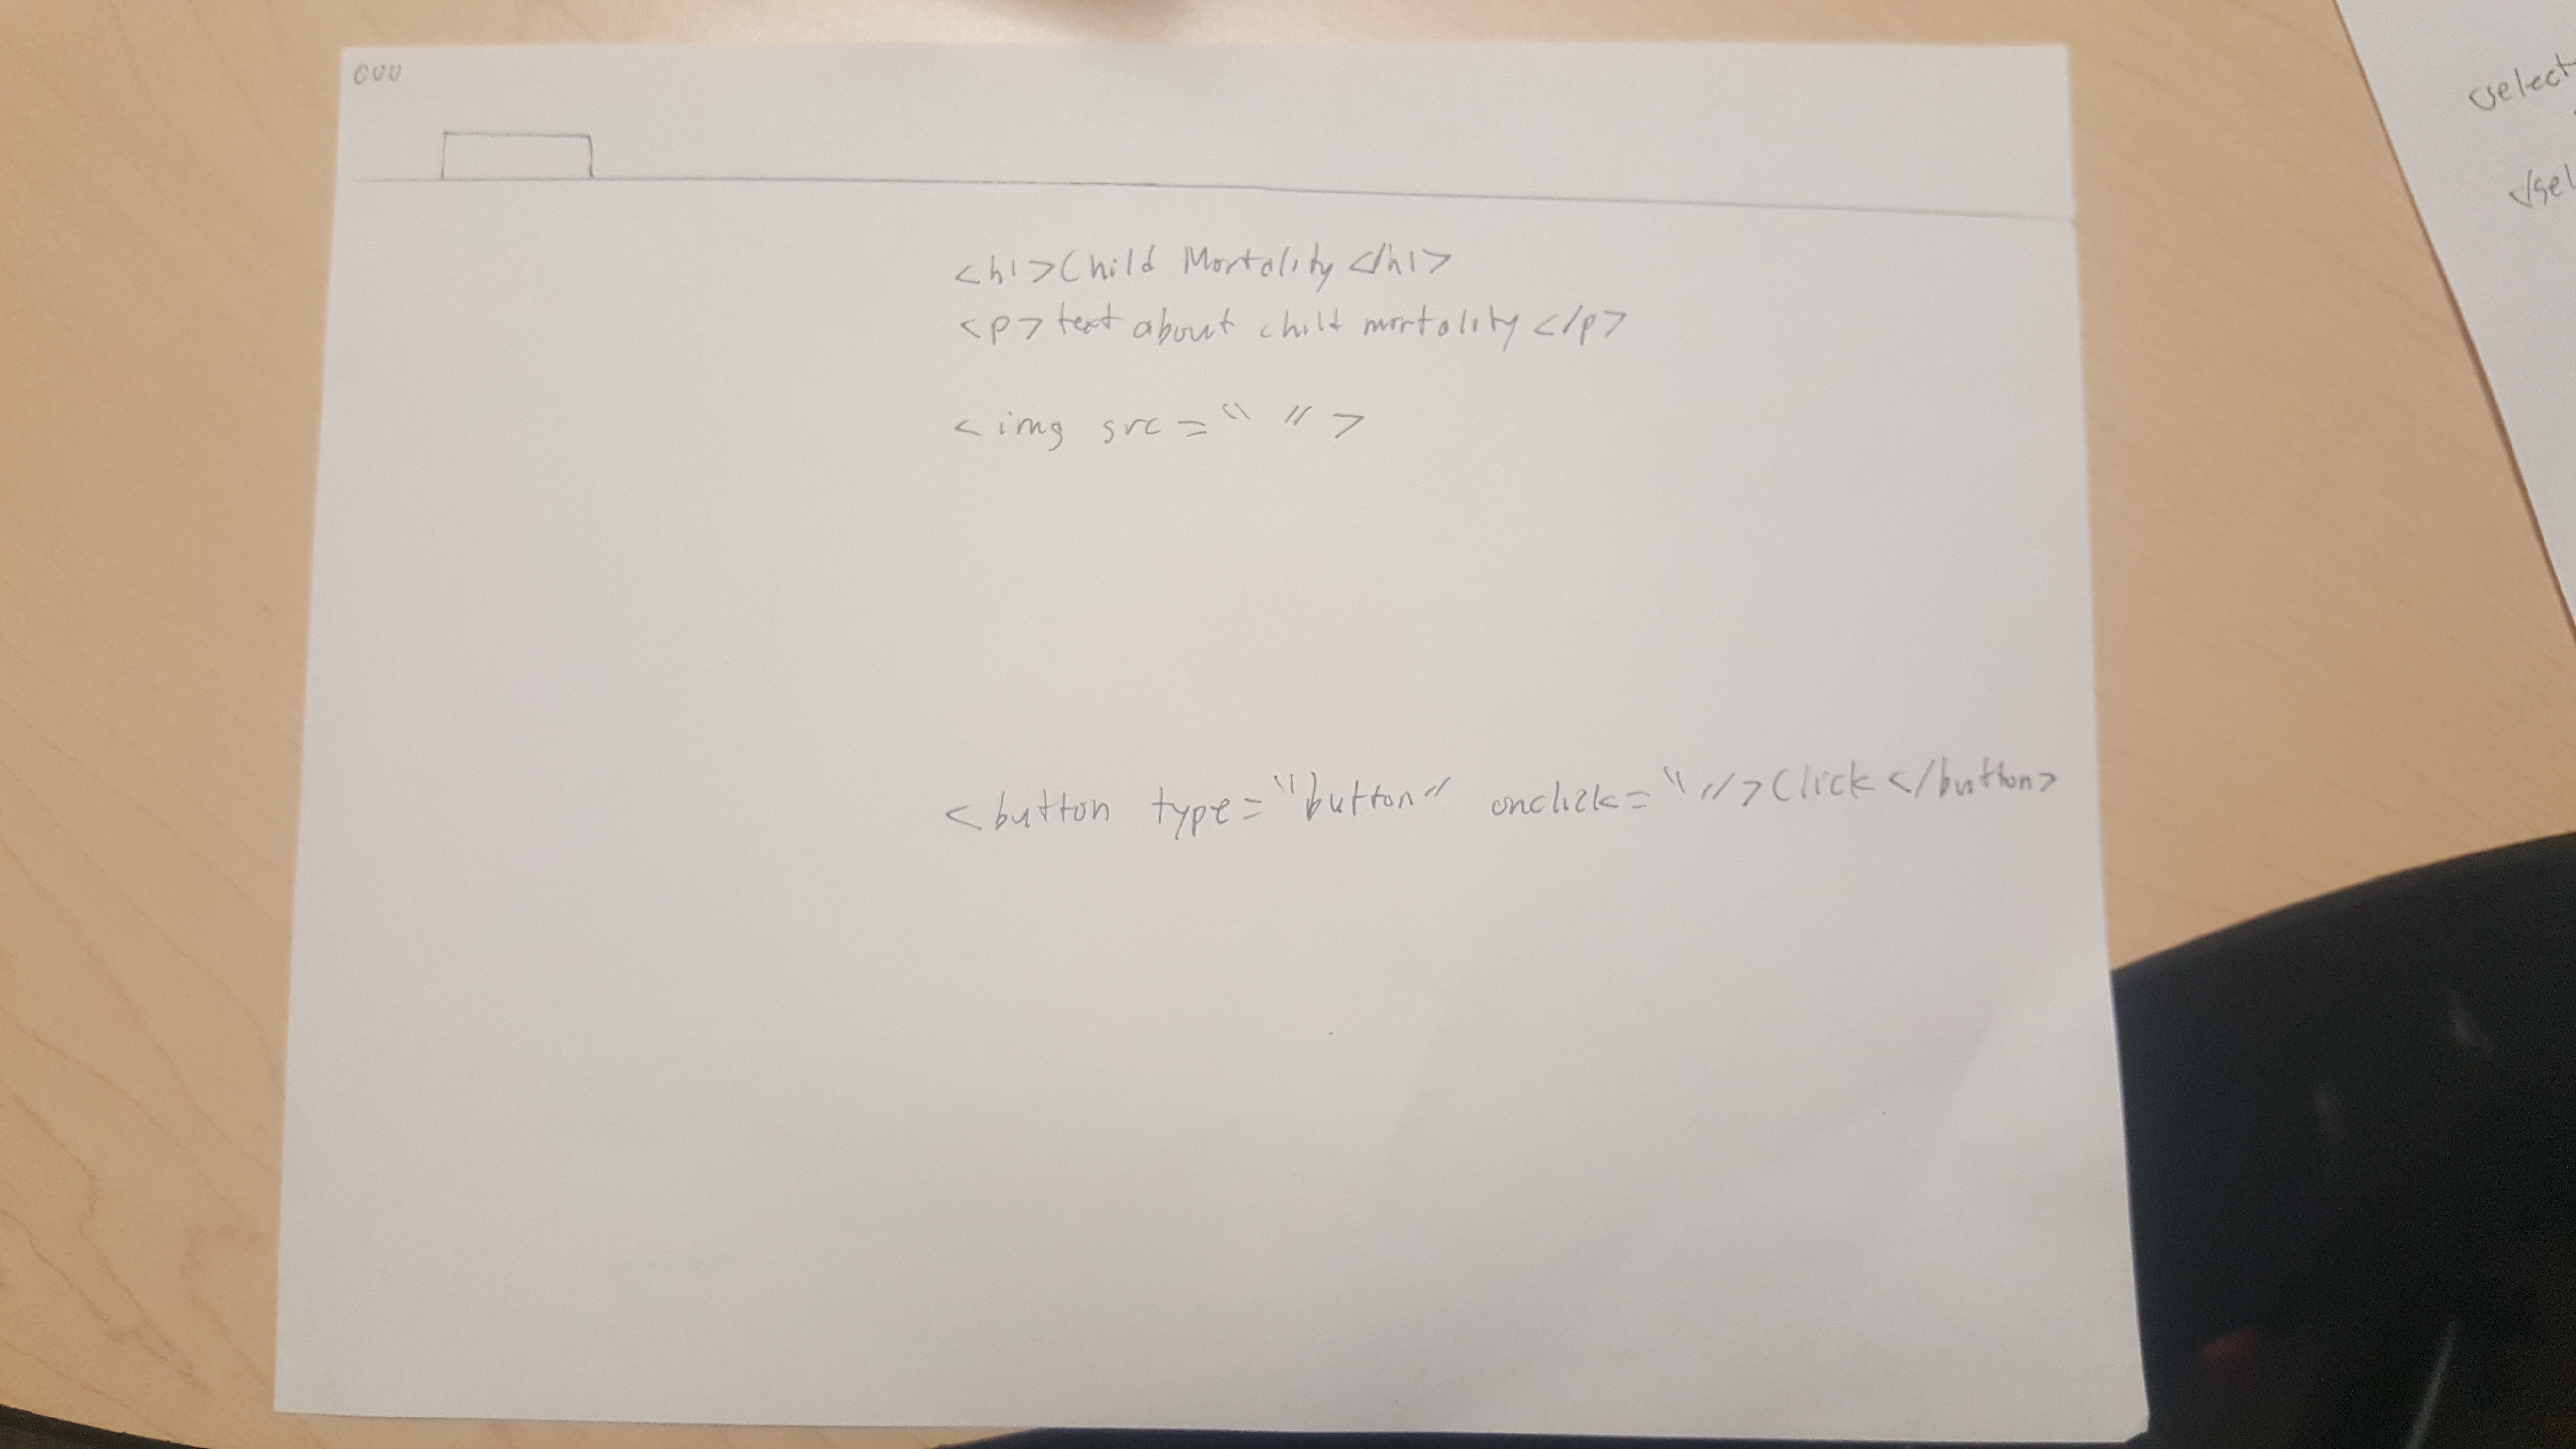 000
<h1>Child Mortality</h1>
<p>text about child mortality</p>
<img src=" ">
<button type="button" onclick=" ">Click</button>
<select
</sel